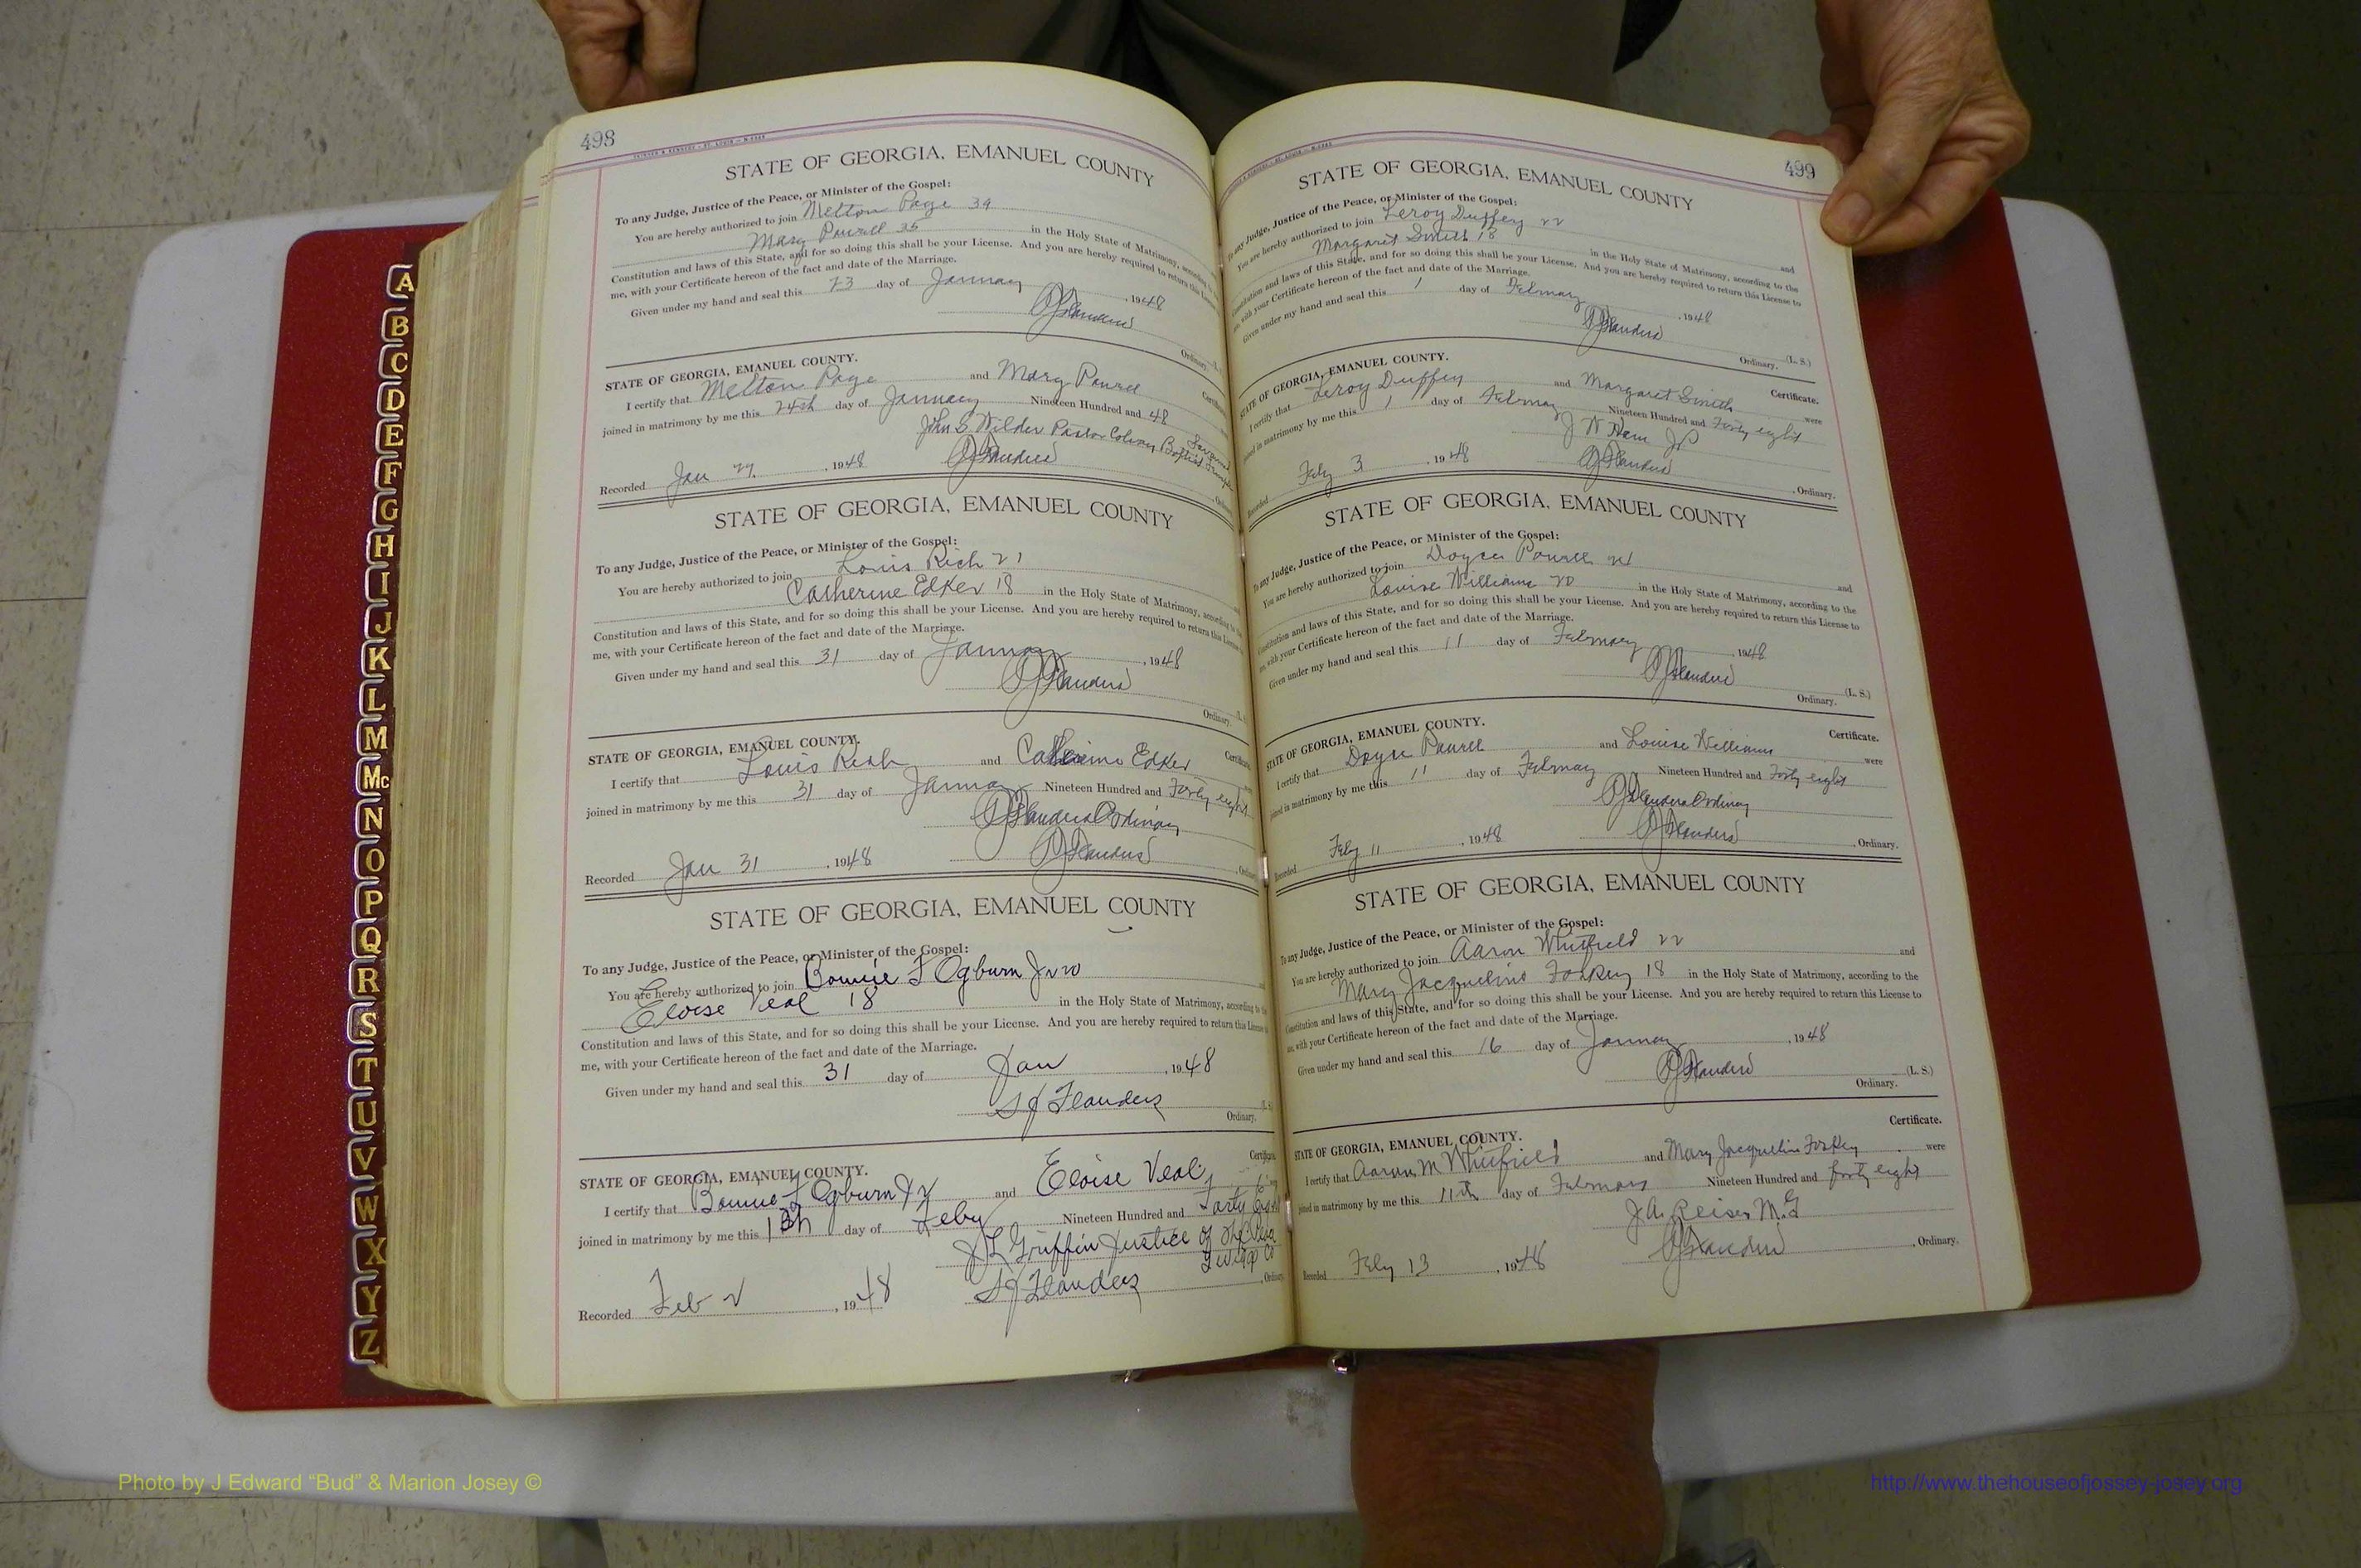 498
STATE OF GEORGIA, EMANUEL COUNTY
To any Judge, Justice of the Peace, or Minister of the Gospel:
You are hereby authorized to join Melton Page 39
Mary Powell 35 in the Holy State of Matrimony, according
Constitution and laws of this State, and for so doing this shall be your License. And you are hereby required to return this
me, with your Certificate hereon of the fact and date of the Marriage.
Given under my hand and seal this 23 day of January, 1948
Flanders
Ordinary.
STATE OF GEORGIA, EMANUEL COUNTY.
I certify that Melton Page and Mary Powell
joined in matrimony by me this 24th day of January Nineteen Hundred and 48
John S Wilder Pastor Baptist
Flanders
Recorded Jan 27, 1948
STATE OF GEORGIA, EMANUEL COUNTY
To any Judge, Justice of the Peace, or Minister of the Gospel:
You are hereby authorized to join Louis Rich 21
Catherine Edker 18 in the Holy State of Matrimony, according to the
Constitution and laws of this State, and for so doing this shall be your License. And you are hereby required to return this License
me, with your Certificate hereon of the fact and date of the Marriage.
Given under my hand and seal this 31 day of January, 1948
Flanders
Ordinary. (L. S.
STATE OF GEORGIA, EMANUEL COUNTY.
Certificate
I certify that Louis Rich and Catherine Edker
joined in matrimony by me this 31 day of January Nineteen Hundred and Forty eight
Flanders Ordinary
Flanders
Recorded Jan 31, 1948
STATE OF GEORGIA, EMANUEL COUNTY
To any Judge, Justice of the Peace, or Minister of the Gospel:
You are hereby authorized to join Bonnie F Ogburn Jr 20
Eloise Veal 18 in the Holy State of Matrimony, according to the
Constitution and laws of this State, and for so doing this shall be your License. And you are hereby required to return this License
me, with your Certificate hereon of the fact and date of the Marriage.
Given under my hand and seal this 31 day of Jan, 1948
Flanders
Ordinary.
STATE OF GEORGIA, EMANUEL COUNTY.
I certify that Bonnie F Ogburn Jr and Eloise Veal
joined in matrimony by me this day of Feby Nineteen Hundred and Forty eight
J L Griffin Justice of the Peace
Twigg Co
Flanders
Recorded Feb 2, 1948
499
STATE OF GEORGIA, EMANUEL COUNTY
any Judge, Justice of the Peace, or Minister of the Gospel:
You are hereby authorized to join Leroy Duffey 22 and
Margaret Smith 18 in the Holy State of Matrimony, according to the
Constitution and laws of this State, and for so doing this shall be your License. And you are hereby required to return this License to
me, with your Certificate hereon of the fact and date of the Marriage.
Given under my hand and seal this 1 day of February, 1948
Flanders (L. S.)
Ordinary.
STATE OF GEORGIA, EMANUEL COUNTY.
Certificate.
I certify that Leroy Duffey and Margaret Smith were
joined in matrimony by me this 1 day of February Nineteen Hundred and Forty eight
J W Ham JP
Flanders, Ordinary.
Recorded Feby 3, 1948
STATE OF GEORGIA, EMANUEL COUNTY
To any Judge, Justice of the Peace, or Minister of the Gospel:
You are hereby authorized to join Doyce Powell 21 and
Louise Williams 20 in the Holy State of Matrimony, according to the
Constitution and laws of this State, and for so doing this shall be your License. And you are hereby required to return this License to
me, with your Certificate hereon of the fact and date of the Marriage.
Given under my hand and seal this 11 day of February, 1948
Flanders (L. S.)
Ordinary.
STATE OF GEORGIA, EMANUEL COUNTY.
Certificate.
I certify that Doyce Powell and Louise Williams were
joined in matrimony by me this 11 day of February Nineteen Hundred and Forty eight
Flanders Ordinary
Flanders, Ordinary.
Recorded Feby 11, 1948
STATE OF GEORGIA, EMANUEL COUNTY
To any Judge, Justice of the Peace, or Minister of the Gospel:
You are hereby authorized to join Aaron Whitfield 22 and
Mary Jacqueline 18 in the Holy State of Matrimony, according to the
Constitution and laws of this State, and for so doing this shall be your License. And you are hereby required to return this License to
me, with your Certificate hereon of the fact and date of the Marriage.
Given under my hand and seal this 16 day of January, 1948
Flanders (L. S.)
Ordinary.
STATE OF GEORGIA, EMANUEL COUNTY.
Certificate.
I certify that Aaron M Whitfield and Mary Jacqueline were
joined in matrimony by me this 11th day of February Nineteen Hundred and forty eight
J.A. Reiser M.G
Flanders, Ordinary.
Recorded Feby 13, 1948
A
B
C
D
E
F
G
H
I
J
K
L
M
Mc
N
O
P
Q
R
S
T
U
V
W
X
Y
Z
Photo by J Edward “Bud” & Marion Josey ©
http://www.thehouseofjossey-josey.org